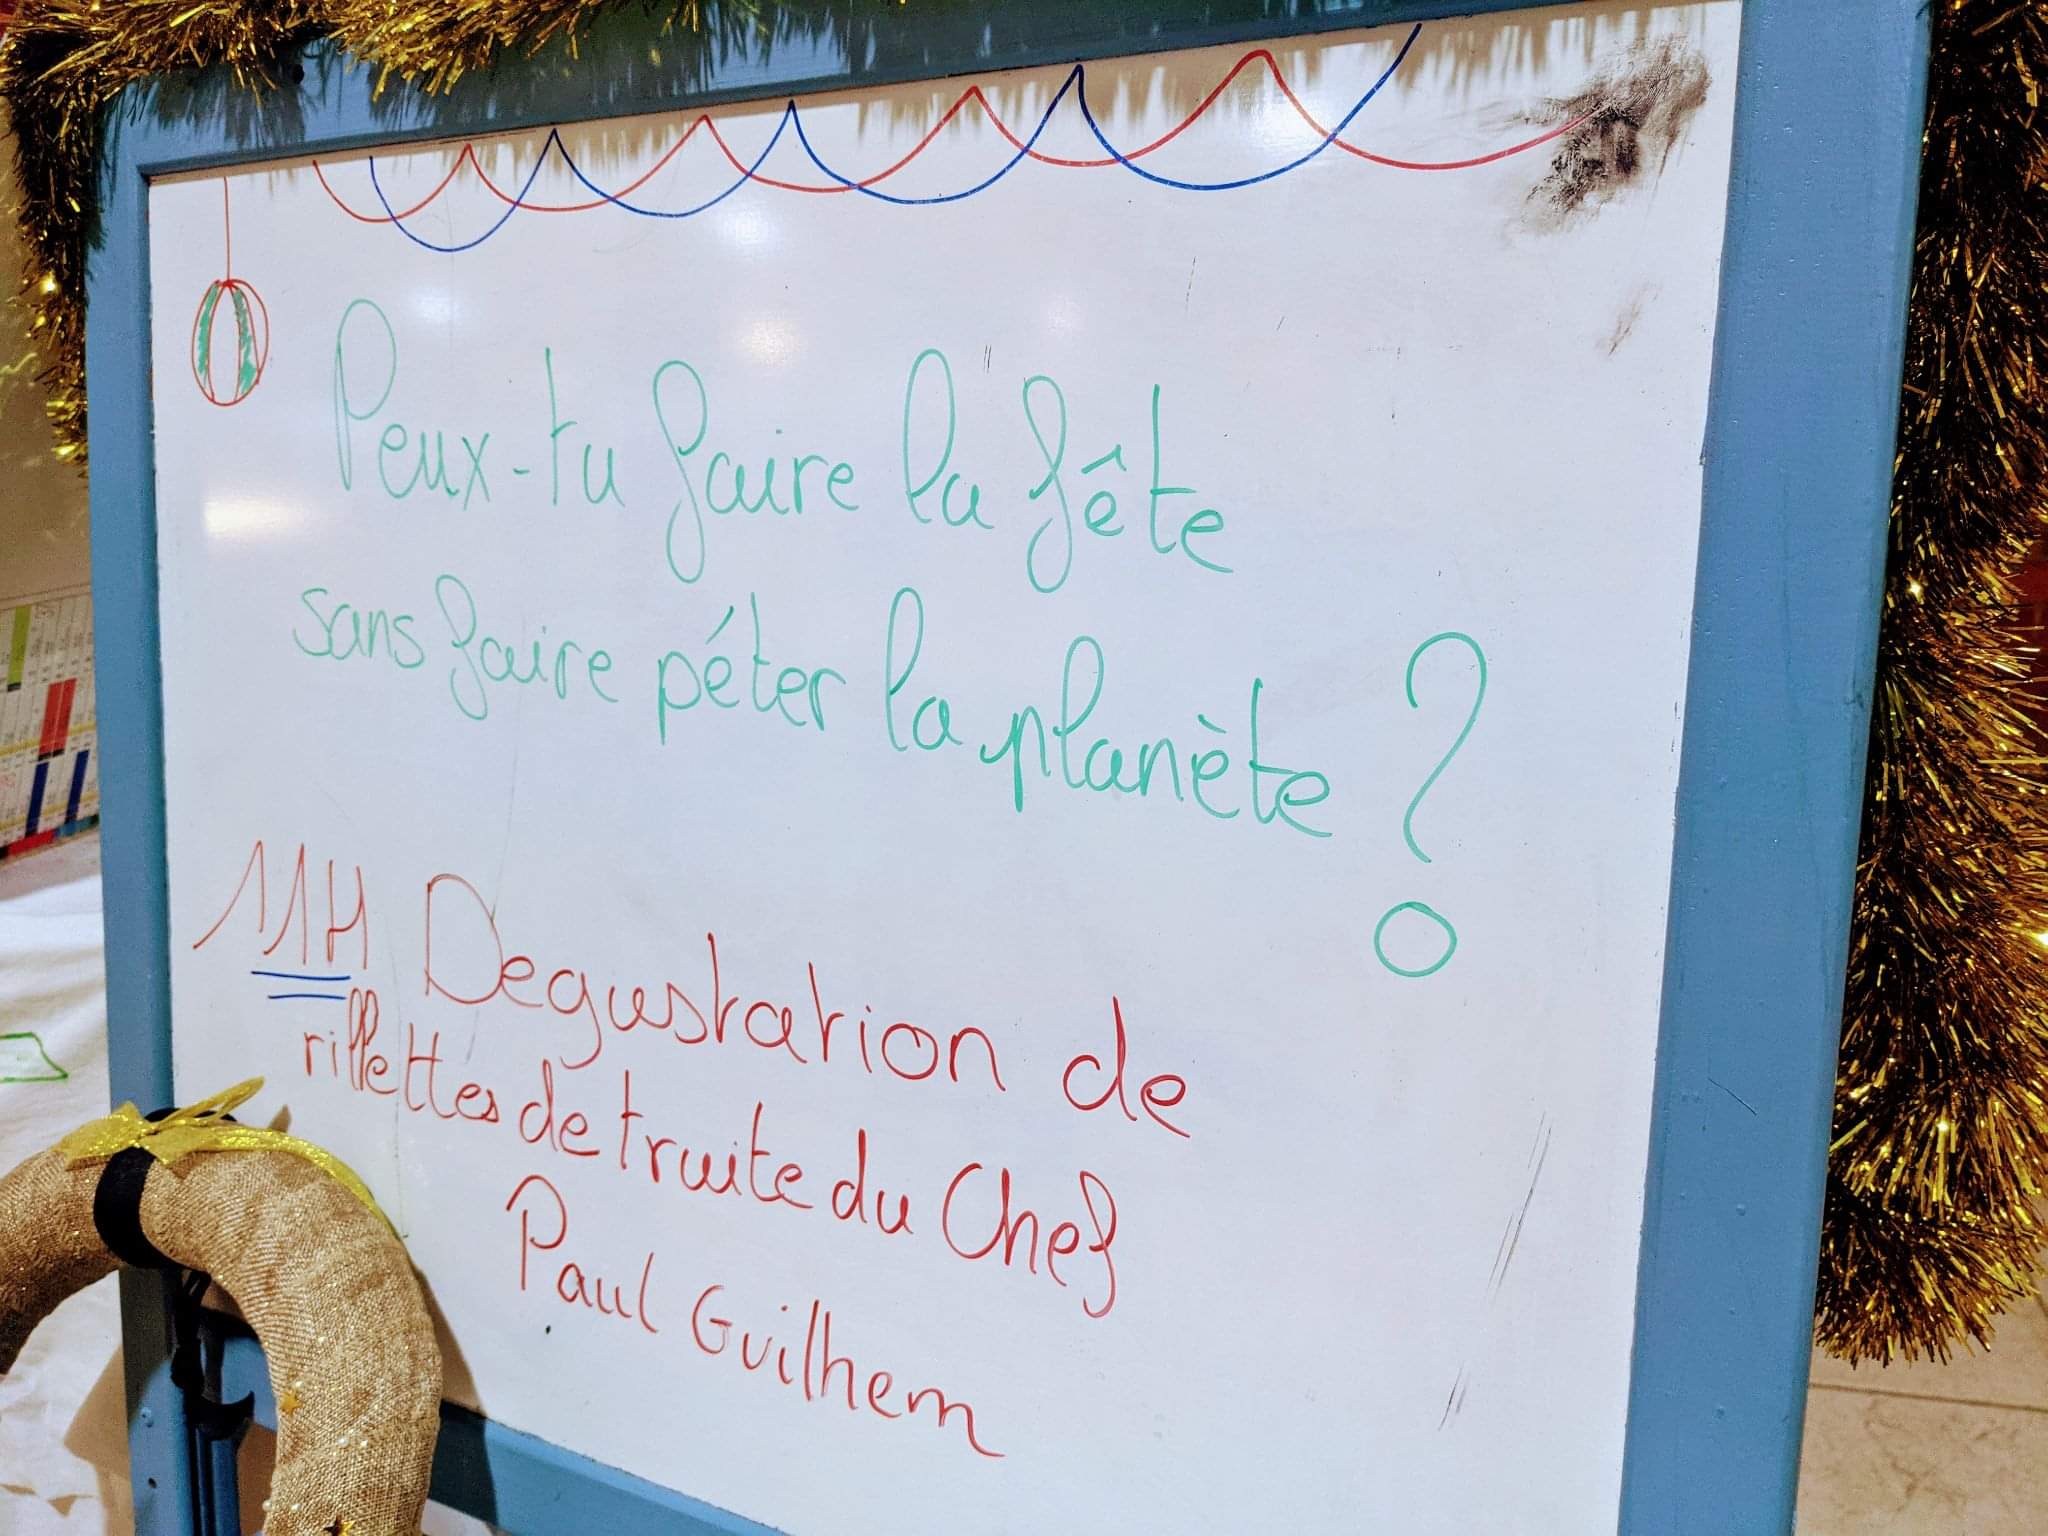 Peux-tu faire la fête
sans faire péter la planète ?
11H Degustation de
rillettes de truite du Chef
Paul Guilhem